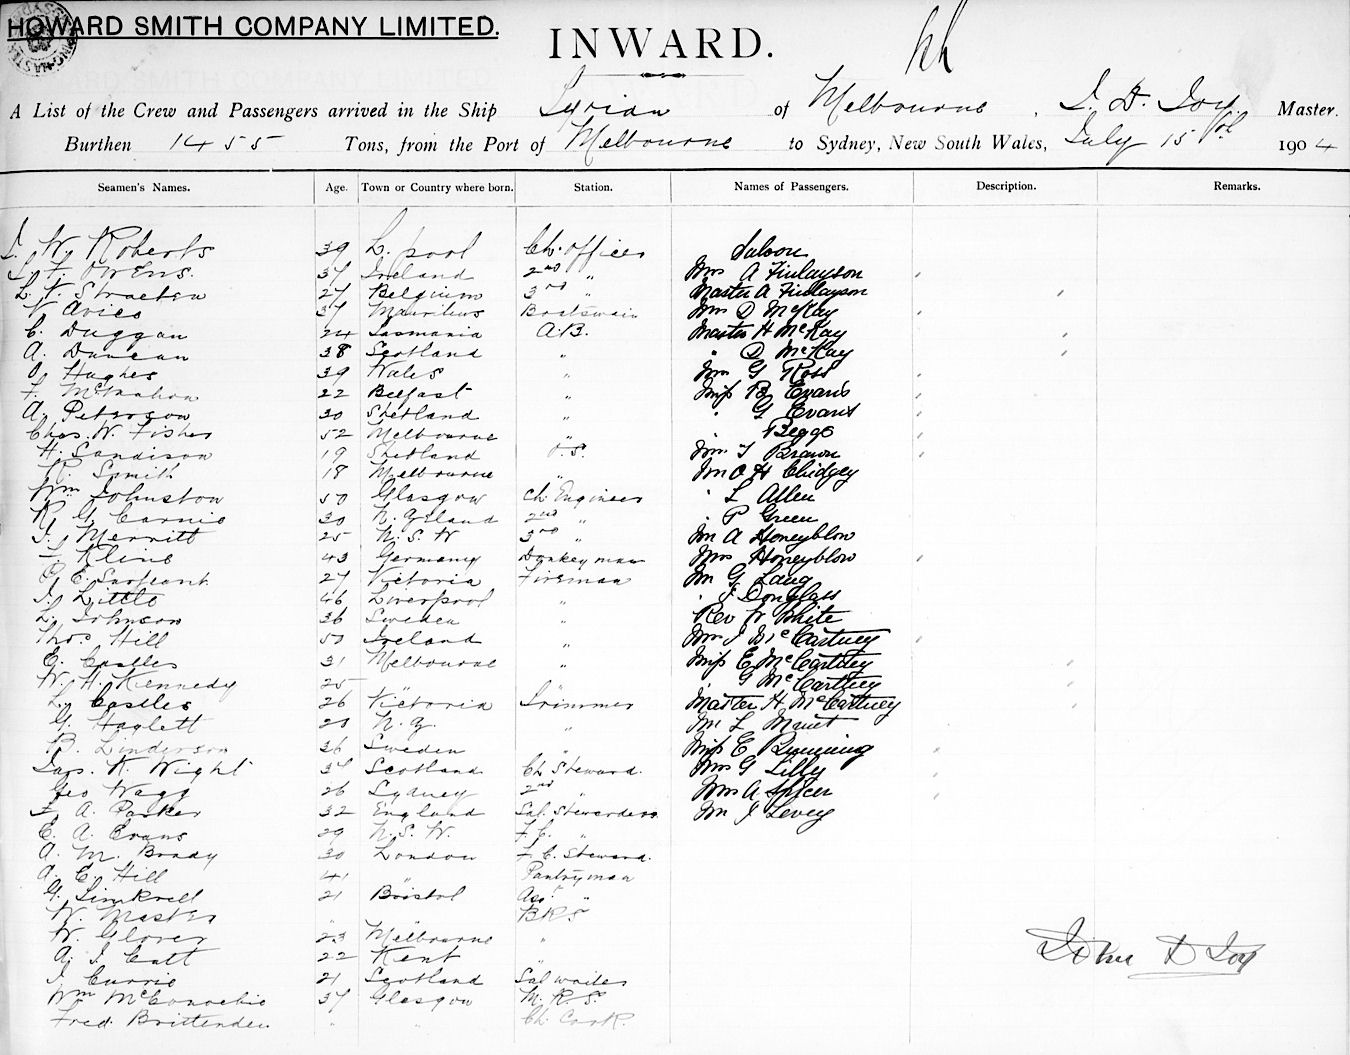 HOWARD SMITH COMPANY LIMITED.
INWARD.
A List of the Crew and Passengers arrived in the Ship Syrian of Melbourne, J. D. Joy Master.
Burthen 1455 Tons, from the Port of Melbourne to Sydney, New South Wales, July 15th 1904
Seamen's Names. Age. Town or Country where born. Station. Names of Passengers. Description. Remarks.
J. W. Roberts 39 L. pool Ch. Officer Saloon
Owens. 37 Ireland 2nd " Mrs A Finlayson
Straeten 27 Belgium 3rd " Master A Finlayson
37 Mauritius Boatswain Mrs D McKay
C. Duggan 24 Tasmania A.B. Master H McKay
A. Duncan 38 Scotland " " D McKay
O. Hughes 39 Wales " G Ross
F. McMahon 22 Belfast " Miss B Evans
A. Peterson 30 Shetland " " G Evans
Chas. W. Fisher 52 Melbourne " Beggs
H. Sandison 19 Shetland O.S. T Brown
R. Smith 18 Melbourne " Chidgey
Wm Johnston 50 Glasgow Ch. Engineer " L Allen
R. G. Carnie 30 N. Zealand 2nd " " P Green
J. Merritt 25 N.S.W 3rd " Mr A Honeyblow
Kline 43 Germany Donkeyman Mrs Honeyblow
E. Sargeant 27 Victoria Fireman Mr G Lang
J. Little 46 Liverpool " " J Douglass
L. Johnson 36 Sweden " Rev W White
Thos Hill 50 Ireland " Mrs J McCartney
G. Castles 31 Melbourne " Miss E McCartney
W. H. Kennedy 25 " " " G McCartney
L. Castles 26 Victoria Trimmer Master H McCartney
G. Haglett 20 N.Z. " Mr L
B. Linderson 36 Sweden " Miss E Binning
Jas. K. Wight 37 Scotland Ch. Steward. Mrs G Lilly
Geo Wagg 26 Sydney 2nd " Mrs A Spicer
A. Parker 32 England Sal. Stewardess Mr J Levey
E. A. Evans 29 N.S.W. F.C. "
A. M. Brady 30 London F.C. Steward.
A. E. Hill 41 " Pantryman
G. 21 Bristol Ass "
W. Master " " B.R.S
W. Glover 23 Melbourne "
A. J. Catt 22 Kent "
J. Currie 21 Scotland Sal waiter
Wm McConachie 37 Glasgow M.R.S.
Fred. Brittenden " " Ch. Cook.
John D Joy